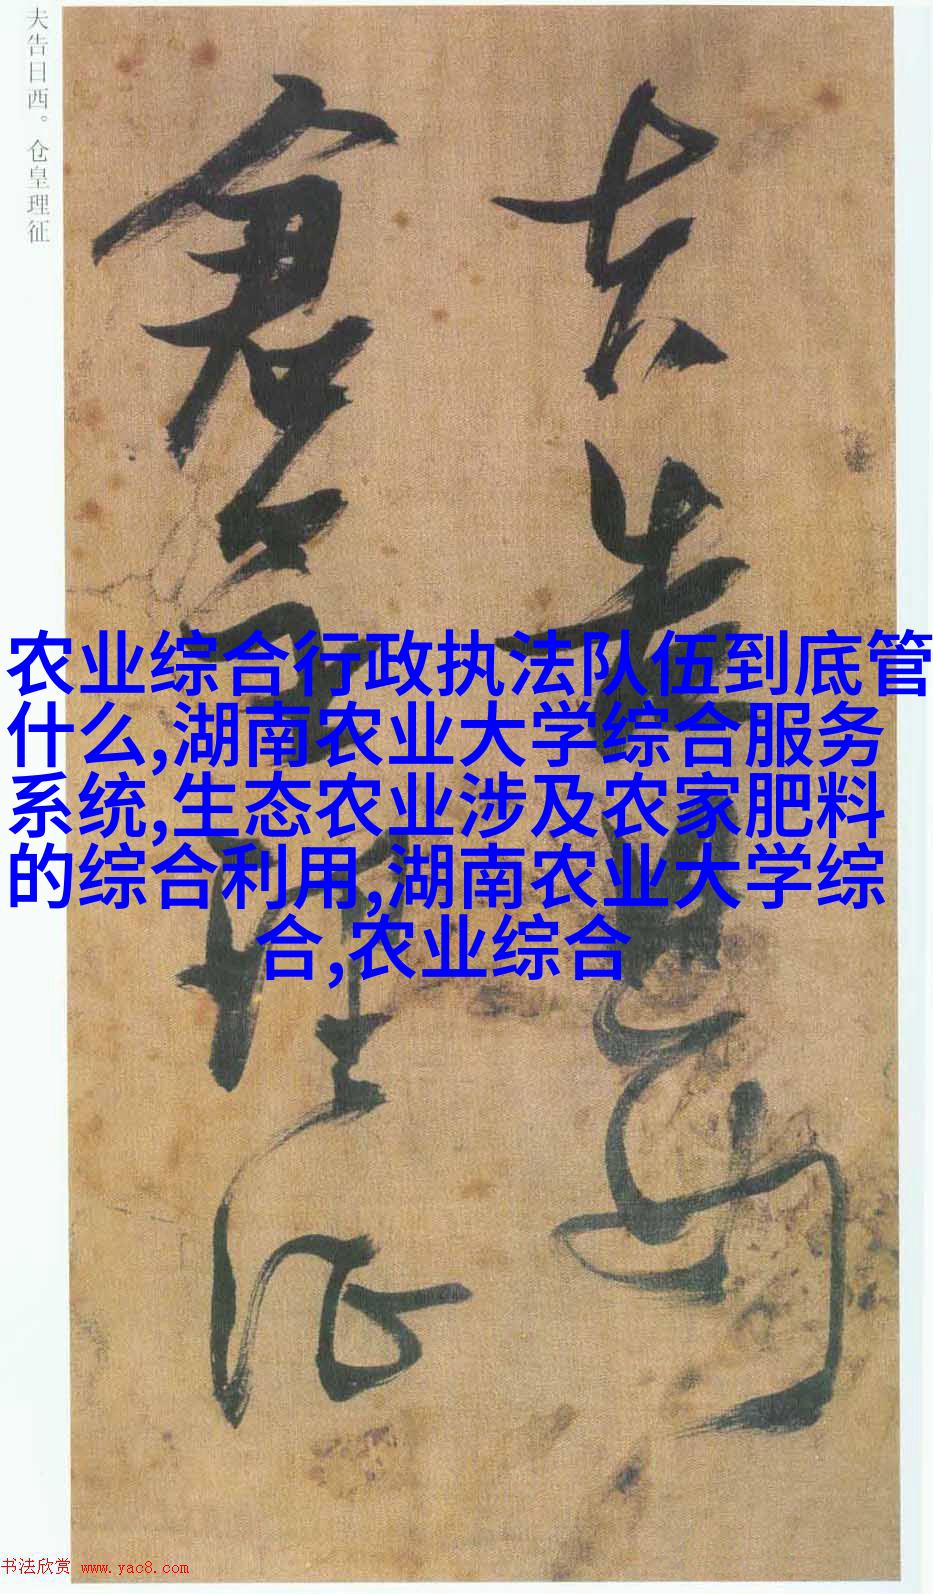 夫告日西。仓皇理征
夫告日西
仓皇理征
农业综合行政执法队伍到底管
什么,湖南农业大学综合服务
系统,生态农业涉及农家肥料
的综合利用,湖南农业大学综
合,农业综合
书法欣赏 www.yac8.com